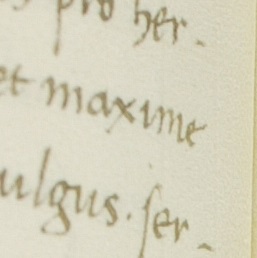 pro her-
et maxime
ulgus. ſer-